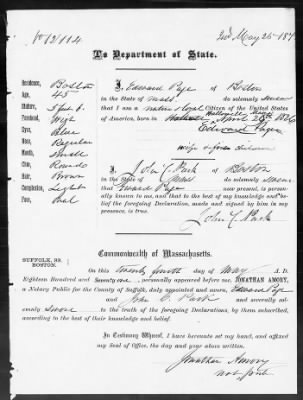 No 12114
Iss'd May 25 187
To Department of State.
Residence, Boston
Age, 45
Stature, 5 feet 8.
Forehead, High
Eyes, Blue
Nose, Regular
Mouth, Small
Chin, Round
Hair, Brown
Complexion, Light
Face, Oval
I, Edward Page of Boston
in the State of Mass. do solemnly swear
that I am a native & loyal Citizen of the United States
of America, born in Hallowell Maine April 28th 1826
Edward Page
wife & four children
I, John C. Park of Boston
in the State of Mass do solemnly swear
that Edward Page now present, is person-
ally known to me, and that to the best of my knowledge and be-
lief the foregoing Declaration, made and signed by him in my
presence, is true.
John C. Park
Commonwealth of Massachusetts.
SUFFOLK, SS.
BOSTON.
On this twenty fourth day of May A. D.
Eighteen Hundred and Seventy one, personally appeared before me, JONATHAN AMORY,
a Notary Public for the County of Suffolk, duly appointed and sworn, Edward Page
and John C. Park and severally sol-
emnly swore to the truth of the foregoing Declarations, by them subscribed,
according to the best of their knowledge and belief.
In Testimony Whereof, I have hereunto set my hand, and affixed
my Seal of Office, the day and year first above written.
Jonathan Amory
Not. Pub.